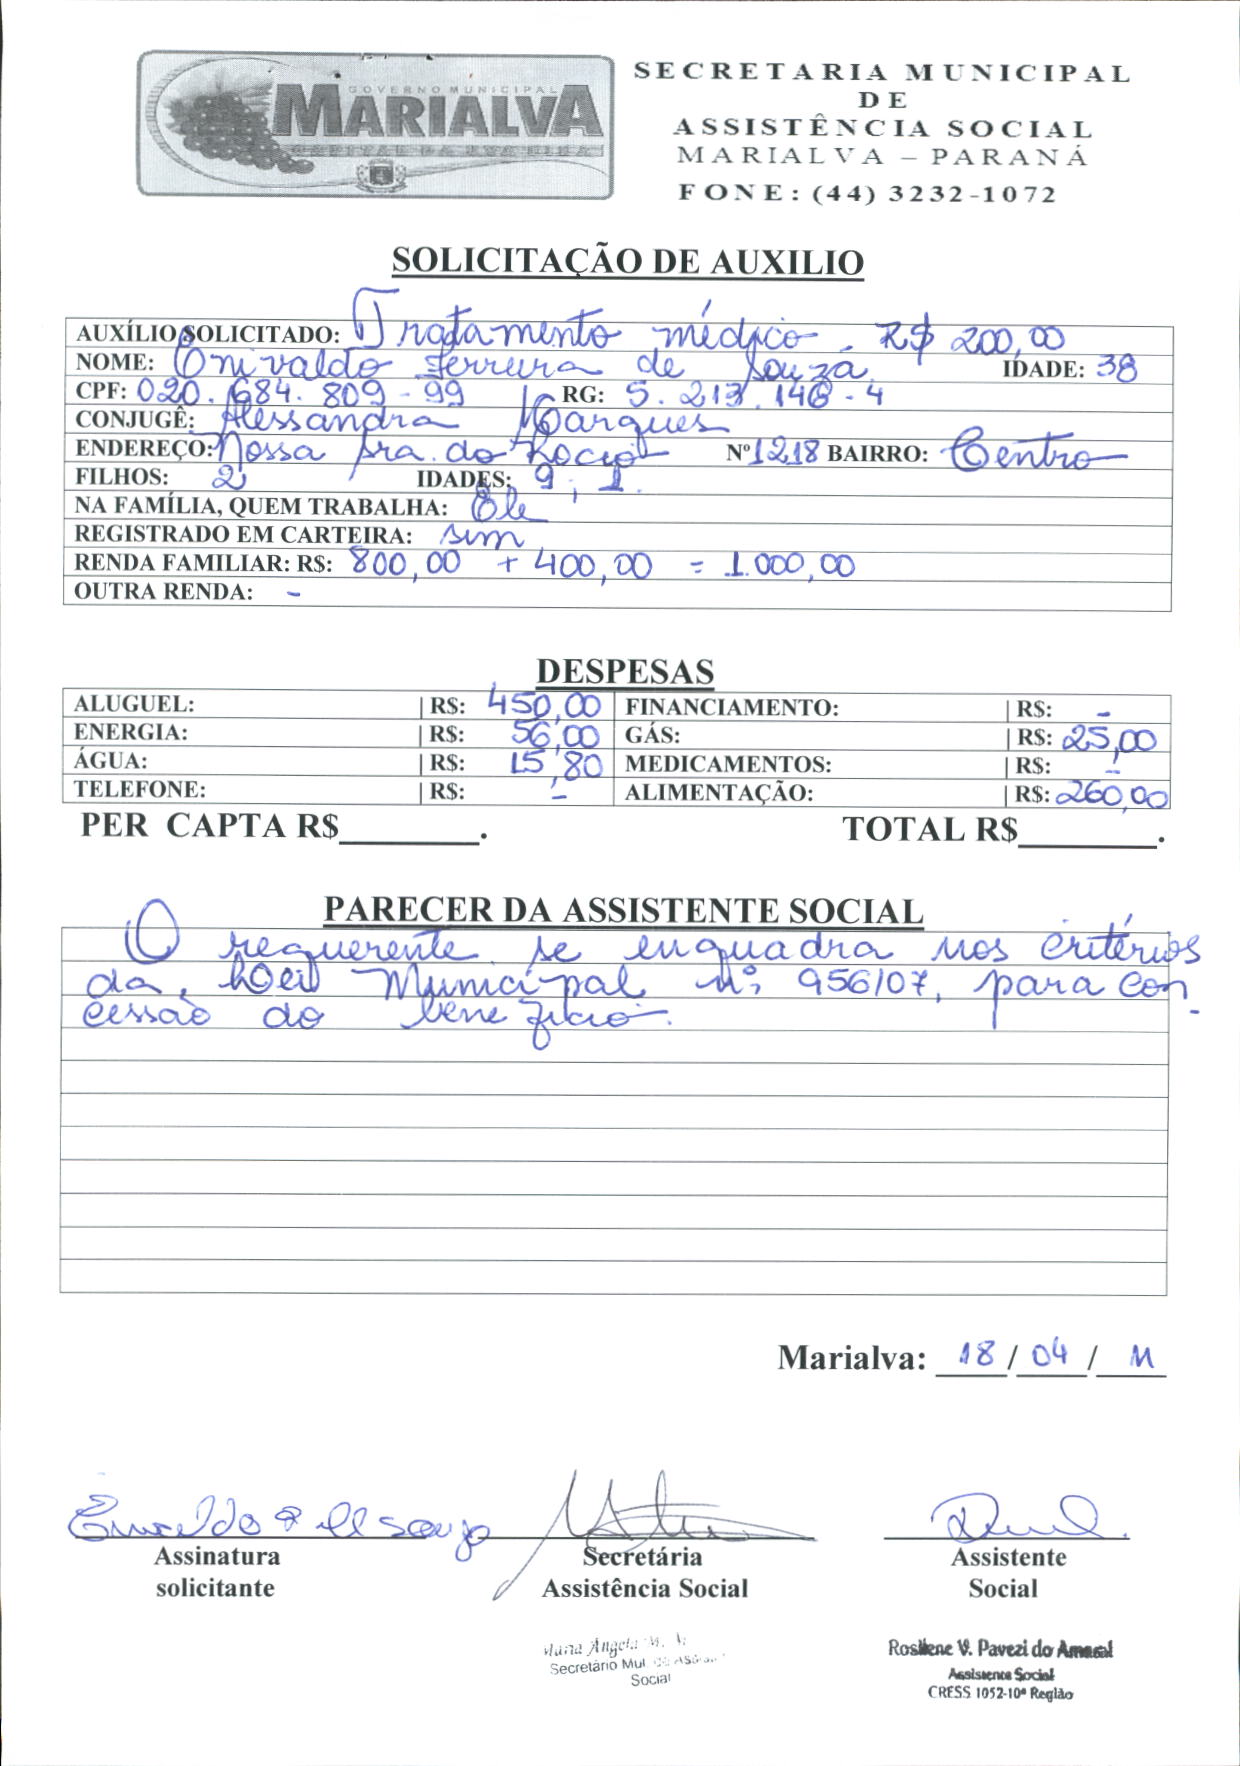 GOVERNO MUNICIPAL
MARIALVA
CAPITAL DA UVA FINA
SECRETARIA MUNICIPAL
DE
ASSISTÊNCIA SOCIAL
MARIALVA – PARANÁ
FONE: (44) 3232-1072
SOLICITAÇÃO DE AUXILIO
AUXÍLIO SOLICITADO: Tratamento médico - R$ 200,00
NOME: Onivaldo Ferreira de Souza. IDADE: 38
CPF: 020.684.809-99 RG: 5.213.146-4
CONJUGÊ: Alessandra Marques
ENDEREÇO: Nossa Sra. do Rocio Nº 1218 BAIRRO: Centro
FILHOS: 2 IDADES: 9, 1.
NA FAMÍLIA, QUEM TRABALHA: Ele
REGISTRADO EM CARTEIRA: sim
RENDA FAMILIAR: R$: 800,00 + 400,00 = 1.000,00
OUTRA RENDA: -
DESPESAS
ALUGUEL: | R$: 450,00 FINANCIAMENTO: | R$: -
ENERGIA: | R$: 56,00 GÁS: | R$: 25,00
ÁGUA: | R$: 15,80 MEDICAMENTOS: | R$: -
TELEFONE: | R$: - ALIMENTAÇÃO: | R$: 260,00
PER CAPTA R$________. TOTAL R$________.
PARECER DA ASSISTENTE SOCIAL
O requerente se enquadra nos critérios
da Lei Municipal nº 956/07, para con-
cessão do benefício.
Marialva: 18 / 04 / 11
Assinatura Secretária Assistente
solicitante Assistência Social Social
Maria Angela M.
Secretário Mul. de Assis
Social
Rosilene V. Pavezi do Amaral
Assistente Social
CRESS 1052-10ª Região